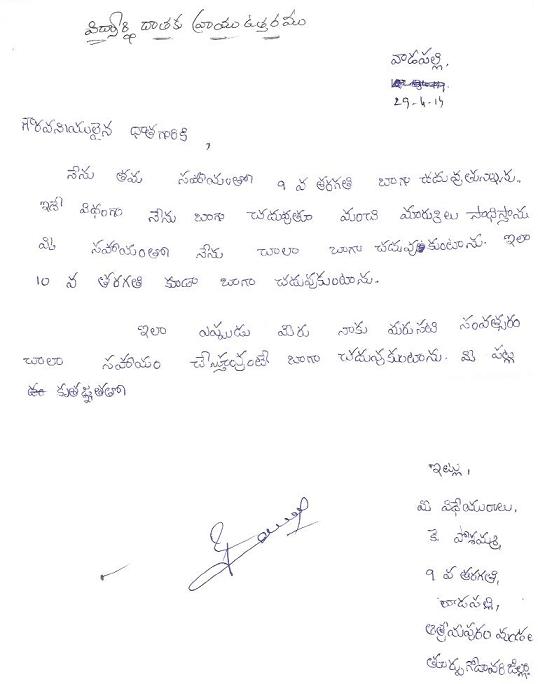 విద్యార్థి దాతకు వ్రాయు ఉత్తరము
వాడపల్లి,
29-4-14
గౌరవనీయులైన దాతగారికి,
నేను తమ సహాయంతో 9 వ తరగతి బాగా చదువుతున్నాను.
ఇదే విధంగా నేను బాగా చదువుతూ మంచి మార్కులు సాధిస్తాను
మీ సహాయంతో నేను చాలా బాగా చదువుకుంటాను. ఇలా
10 వ తరగతి కూడా బాగా చదువుకుంటాను.
ఇలా ఎప్పుడు మీరు నాకు మరుసటి సంవత్సరం
చాలా సహాయం చేస్తుంటే బాగా చదువుకుంటాను. మీ పట్ల
కృతజ్ఞతతో
ఇట్లు,
మీ విధేయురాలు,
కె. పోశమ్మ,
9 వ తరగతి,
వాడపల్లి,
ఆత్రేయపురం మండలం
తూర్పుగోదావరి జిల్లా